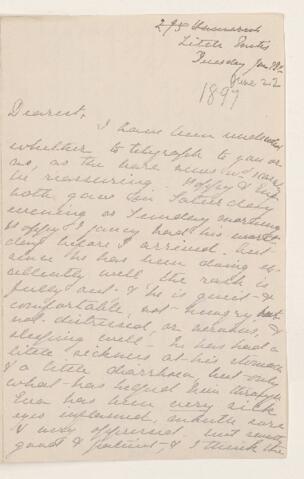 Tuesday
June 22
1897
Dearest,
I have been undecided
whether to telegraph to you or
no, as the bare news w^d. hardly
be reassuring. Hoppy &
both gave in Saturday
evening or Sunday morning
Hoppy I fancy had his worst
day before I arrived. but
since he has been doing ex-
cellently well the rash is
fully out - & he is quiet - &
comfortable, not - hungry but
not distressed, or anxious, &
sleeping well - He has had a
little sickness at his stomach
& a little diarrhoea but only
what has helped him through
has been very sick
eyes inflamed, mouth sore
& very oppressed. but
good & patient, & I think the